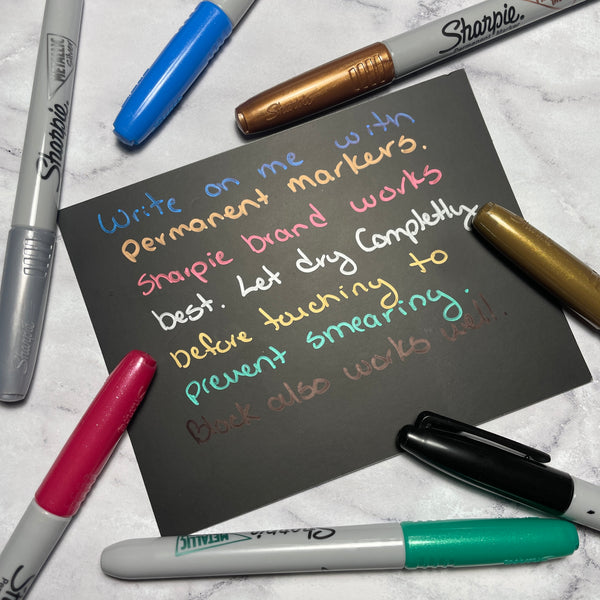 METALLIC
Sharpie.
Sharpie
Sharpie.
Permanent Marker
Sharpie
Write on me with
permanent markers.
Sharpie brand works
best. Let dry Completly
before touching to
prevent smearing.
Black also works well.
Sharpie
METALLIC